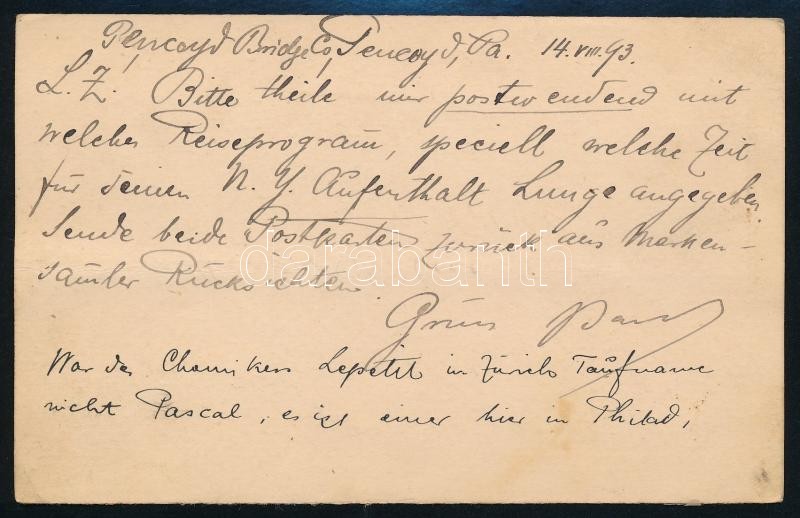 Pencoyd Bridge Co, Pencoyd, Pa. 14.VIII.93.
L. Z. Bitte theile mir postwendend mit
welches Reiseprogram, speciell welche Zeit
für deinen N. Y. Aufenthalt Lunge angegeben.
Sende beide Postkarten zurück aus Marken-
samler Rücksichten.
Gruss
War des Chemikers Lepetit in Zürich Taufname
nicht Pascal, es ist einer hier in Philad,
darabanth